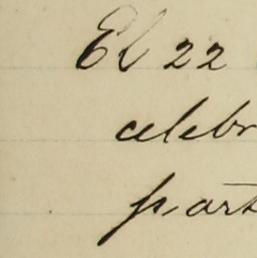 El 22
celebr
part